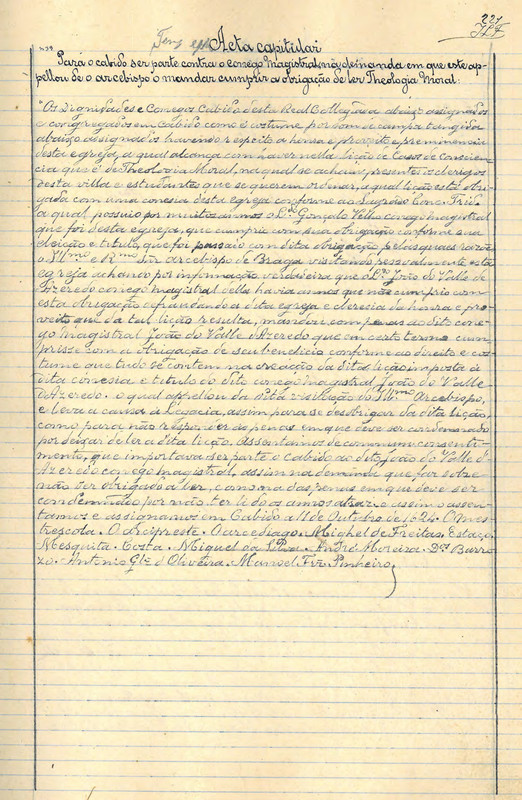 221
Acta capitular
Para o cabido ser parte contra o conego magistral, na demanda em que este ap-
pellou de o arcebispo o mandar cumprir a obrigação de ler Theologia Moral:
"Os Dignidades e Conegos Cabido desta Real Collegiada abaixo assignados
e congregados em cabido como é costume, por som de campa tangida
abaixo assignados havendo respeito á honra e proveito e preeminencia
desta egreja, a qual alcança com haver nella lição de Casos de Conscien-
cia que é de Theologia Moral, na qual se acham presentes os clerigos
desta villa e estudantes que se querem ordenar, a qual lição está obri-
gada com uma conesia desta egreja conforme ao Sagrado Conc. Trid.
a qual possuio por muitos annos o Dr. Gonçalo Velho conego magistral
que foi desta egreja, que cumprio com sua obrigação conforme sua
eleição e titulo, que foi passado com dita obrigação pelas quaes razões
o Illmo e Rmo Snr arcebispo de Braga visitando pessoalmente esta
egreja achando por informação verdadeira que o Dr. João do Valle de
Azeredo conego magistral della havia annos que não cumprio com
esta obrigação defraudando a dita egreja e clerecia da honra e pro-
veito que da tal lição resulta, mandou, com penas ao dito cone-
go magistral João do Valle d'Azeredo que em certo termo cum-
prisse com a obrigação de seu beneficio conforme ao direito e cos-
tume que tudo se contem na creação da dita lição imposta á
dita conesia e titulo do dito conego magistral João do Valle
d'Azeredo. o qual appellou da dita visitação do Illmo Arcebispo,
e leva a causa á Legacia, assim para se desobrigar da dita lição,
como para não responder ás penas em que deve ser condemnado
por deixar de ler a dita lição. Assentamos de commum consenti-
mento, que importava ser parte o cabido ao dito João do Valle d'
Azeredo conego magistral, assim na demanda que faz sobre
não ser obrigado a ler, como na das penas em que deve ser
condemnado por não ter lido os annos atraz. e assim o assen-
tamos e assignamos em Cabido a 17 de Outubro de 1624. O mes-
trescola. O arcipreste. O arcediago. Mighel de Freitas. Estaço.
Mesquita. Costa. Miguel da Silva. André Moreira. Dos Barro-
zo. Antonio Glz d'Oliveira. Manoel Frz Pinheiro.